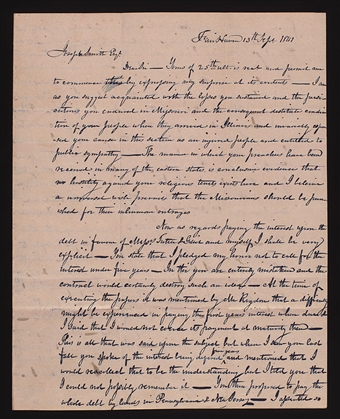 Fair Haven 13th Sept 1841
Joseph Smith Esqr
Dear Sir — Yours of 25th ult is recd and permit me
to commence by expressing my surprise at its contents — I am
as you suggest acquainted with the losses you sustained and the perse-
cutions you endured in Missouri and the consequent destitute condi-
tion of your people when they arrived in Illinois and
your cause in this section as an injured people and entitled to
public sympathy — The manner in which your preachers have been
received in many of the eastern states is conclusive evidence that
no hostility against your religious tenets exists here and I believe
a universal wish prevails that the Missourians should be puni-
shed for their inhuman outrages
Now as regards paying the interest upon the
debt in favour of Messrs Tuttle & and myself I shall be very
explicit — You state that I pledged my honor not to call for the
interest under five years — In this you are entirely mistaken and the
contract would certainly destroy such an idea — At the time of
executing the papers it was mentioned by Mr Rigdon that a difficulty
might be experienced in paying the first years interest when due &
I said that I would not its payment at maturity then —
This is all that was said upon the subject but when I saw you last
fall you spoke of the interest being years and mentioned that I
would recollect that to be the understanding but I told you that
I could not possibly remember it — You then proposed to pay the
whole debt by lands in Pennsylvania & New Jersey — I so